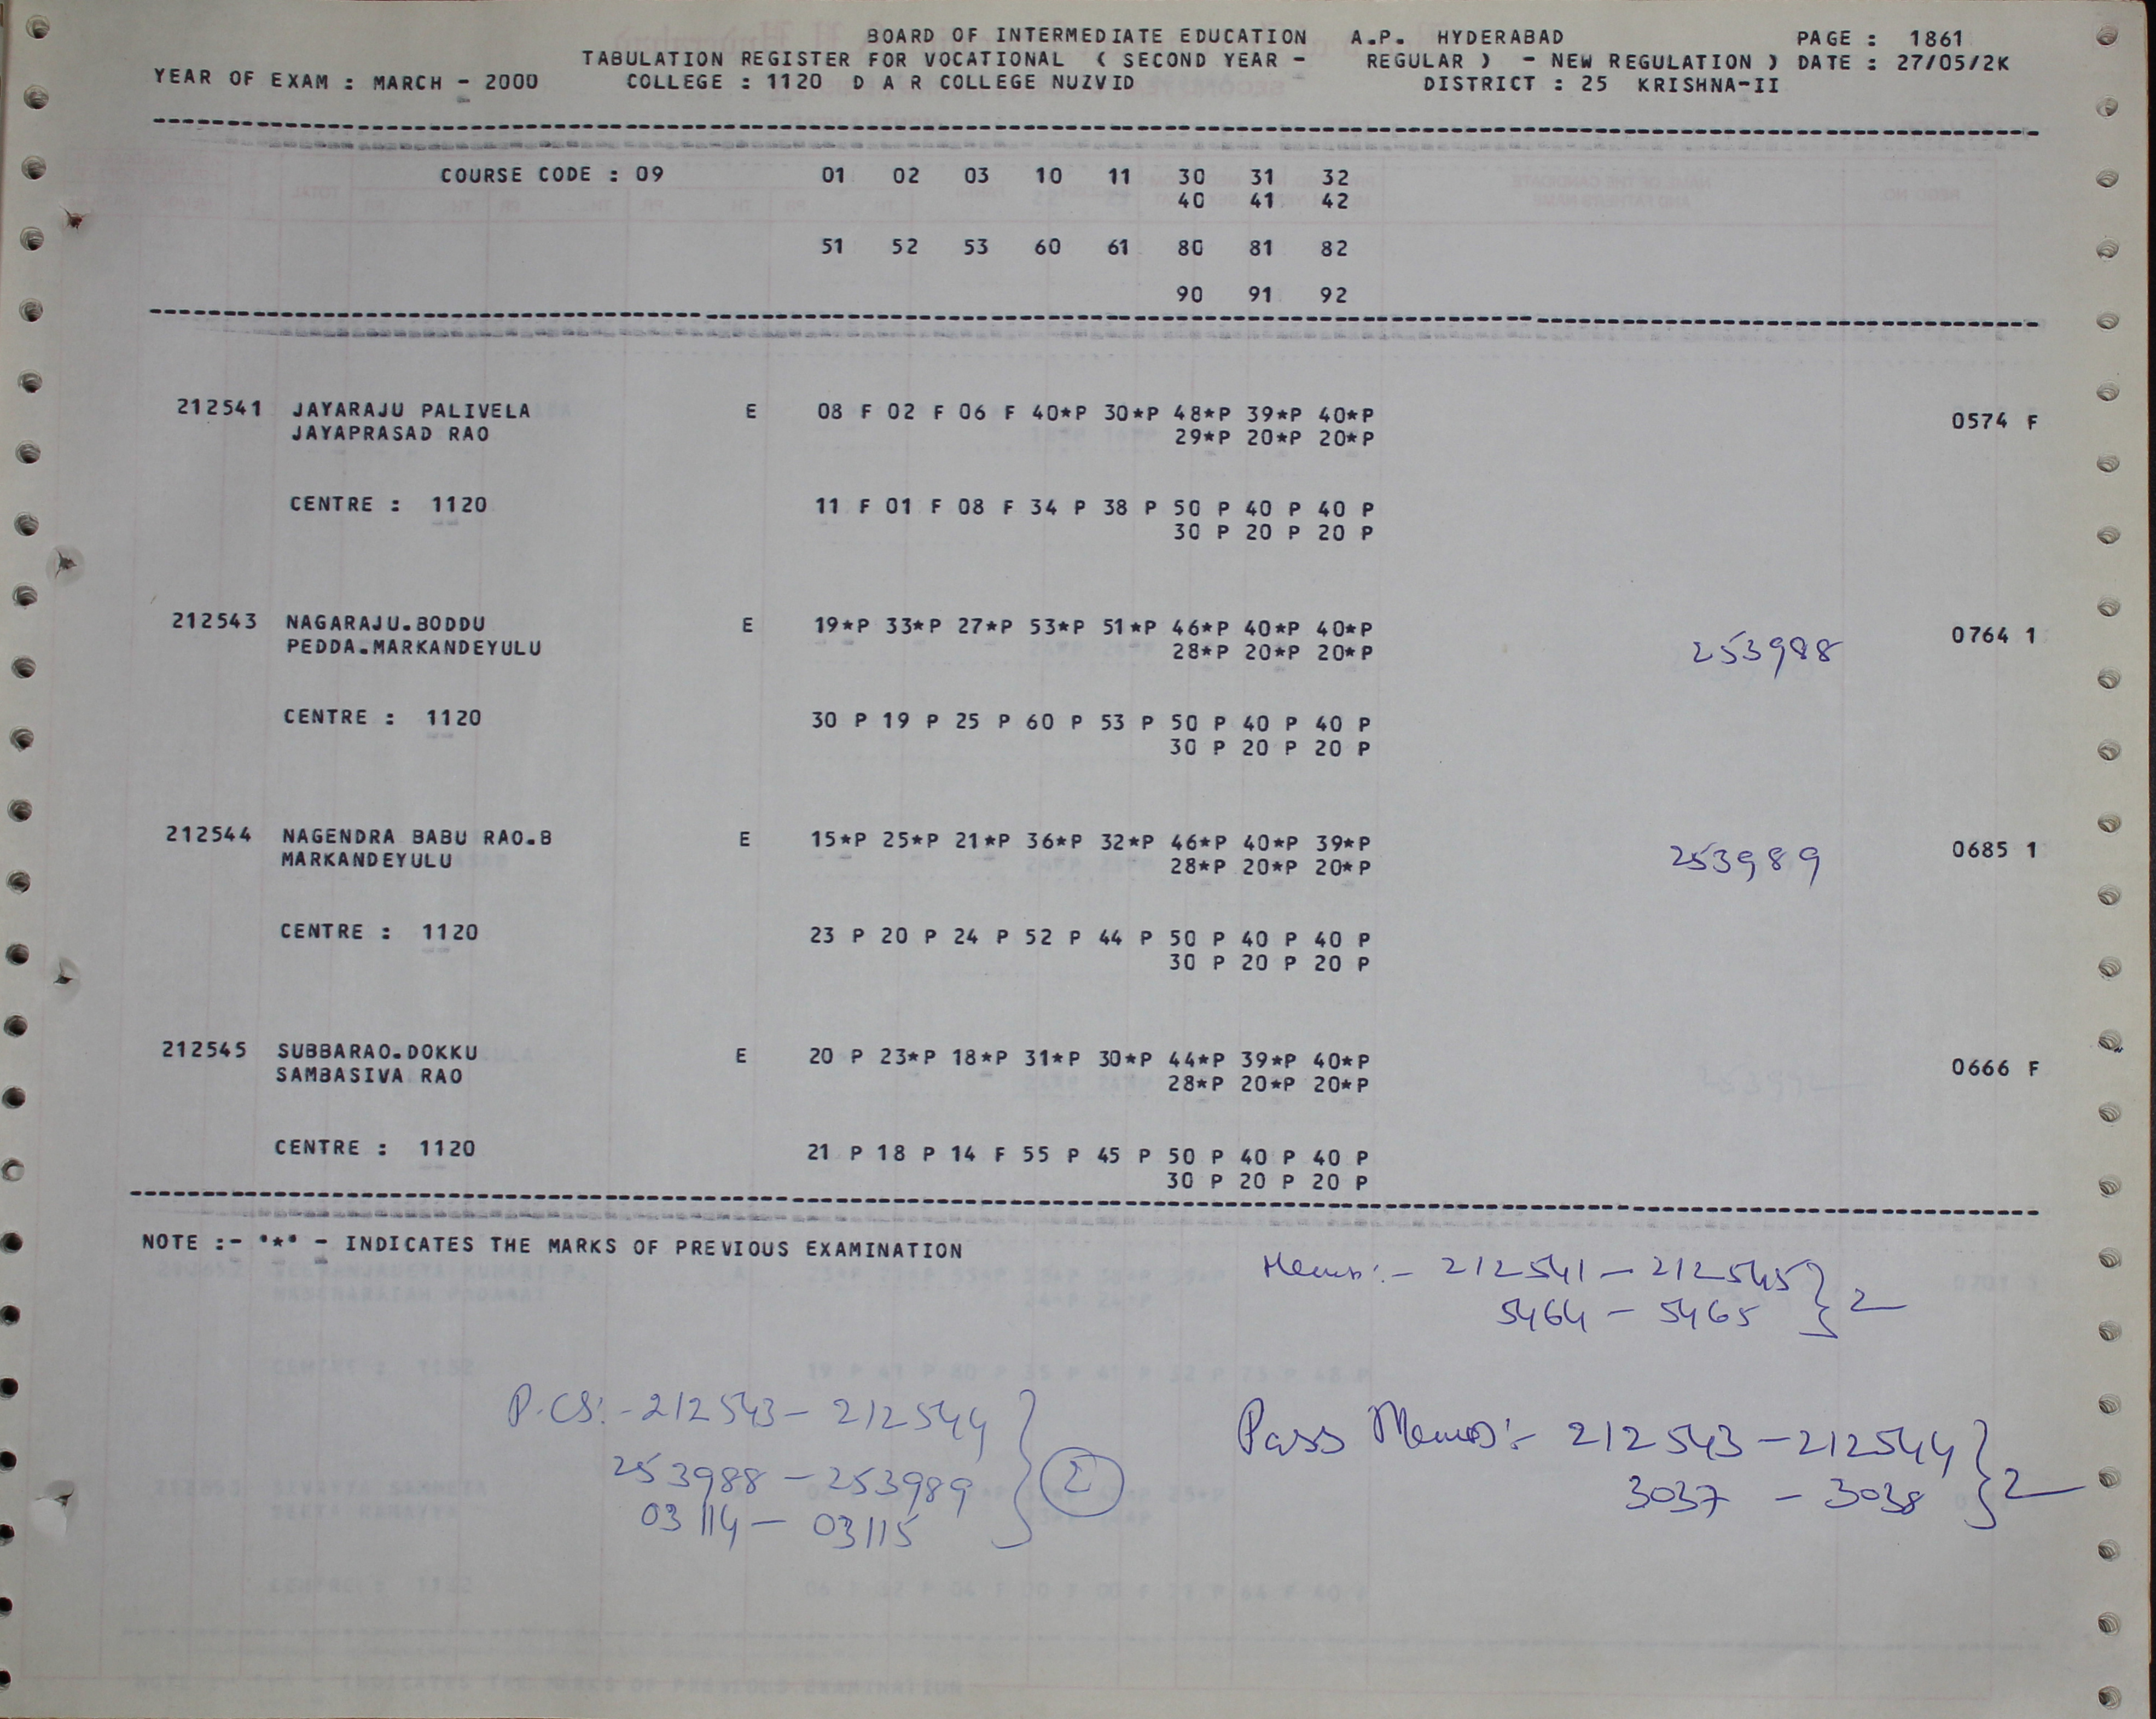 BOARD OF INTERMEDIATE EDUCATION A.P. HYDERABAD PAGE : 1861
TABULATION REGISTER FOR VOCATIONAL ( SECOND YEAR - REGULAR ) - NEW REGULATION ) DATE : 27/05/2K
YEAR OF EXAM : MARCH - 2000 COLLEGE : 1120 D A R COLLEGE NUZVID DISTRICT : 25 KRISHNA-II
COURSE CODE : 09 01 02 03 10 11 30 31 32
40 41 42
51 52 53 60 61 80 81 82
90 91 92
212541 JAYARAJU PALIVELA E 08 F 02 F 06 F 40*P 30*P 48*P 39*P 40*P 0574 F
JAYAPRASAD RAO 29*P 20*P 20*P
CENTRE : 1120 11 F 01 F 08 F 34 P 38 P 50 P 40 P 40 P
30 P 20 P 20 P
212543 NAGARAJU.BODDU E 19*P 33*P 27*P 53*P 51*P 46*P 40*P 40*P 0764 1
PEDDA.MARKANDEYULU 28*P 20*P 20*P 253988
CENTRE : 1120 30 P 19 P 25 P 60 P 53 P 50 P 40 P 40 P
30 P 20 P 20 P
212544 NAGENDRA BABU RAO.B E 15*P 25*P 21*P 36*P 32*P 46*P 40*P 39*P 0685 1
MARKANDEYULU 28*P 20*P 20*P 253989
CENTRE : 1120 23 P 20 P 24 P 52 P 44 P 50 P 40 P 40 P
30 P 20 P 20 P
212545 SUBBARAO.DOKKU E 20 P 23*P 18*P 31*P 30*P 44*P 39*P 40*P 0666 F
SAMBASIVA RAO 28*P 20*P 20*P
CENTRE : 1120 21 P 18 P 14 F 55 P 45 P 50 P 40 P 40 P
30 P 20 P 20 P
NOTE :- '*' - INDICATES THE MARKS OF PREVIOUS EXAMINATION
Memo:- 212541 - 212545 } 2
5464 - 5465
P.CS:- 212543 - 212544
253988 - 253989 } 2
03114 - 03115
Pass Memo:- 212543 - 212544 } 2
3037 - 3038